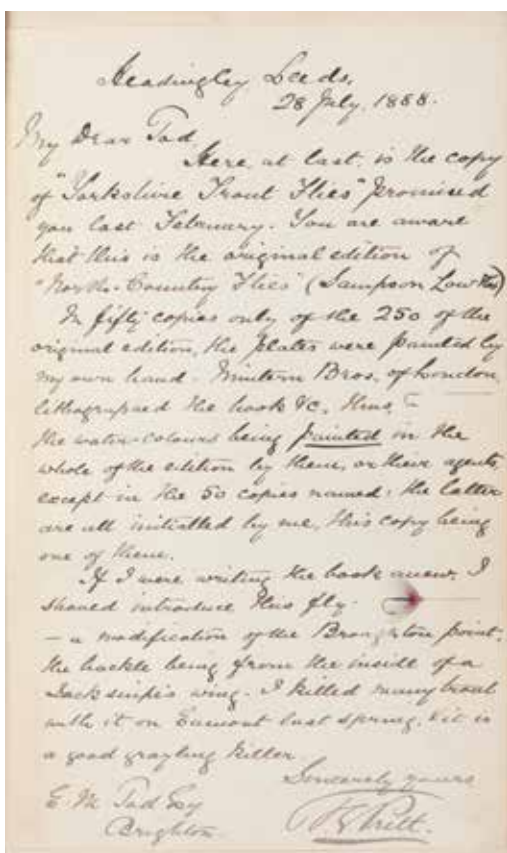 Headingley Leeds,
28 July, 1888.
My Dear Tod
Here, at last, is the copy
of "Yorkshire Trout Flies" promised
you last February. You are aware
that this is the original edition of
"North-Country Flies" (Sampson Low
In fifty copies only of the 250 of the
original edition, the plates were painted by
my own hand. Mintern Bros. of London,
lithographed the hook &c, thus,
the water-colours being painted in the
whole of the edition by them, or their agents,
except in the 50 copies named; the latter
are all initialled by me, this copy being
one of them.
If I were writing the book anew, I
should introduce this fly.
— a modification of the Broughton point,
the hackle being from the inside of a
Jack snipe's wing. I killed many trout
with it on Eamont last spring, & it is
a good grayling killer
Sincerely yours
T E Pritt.
E. M. Tod Esq
Brighton.